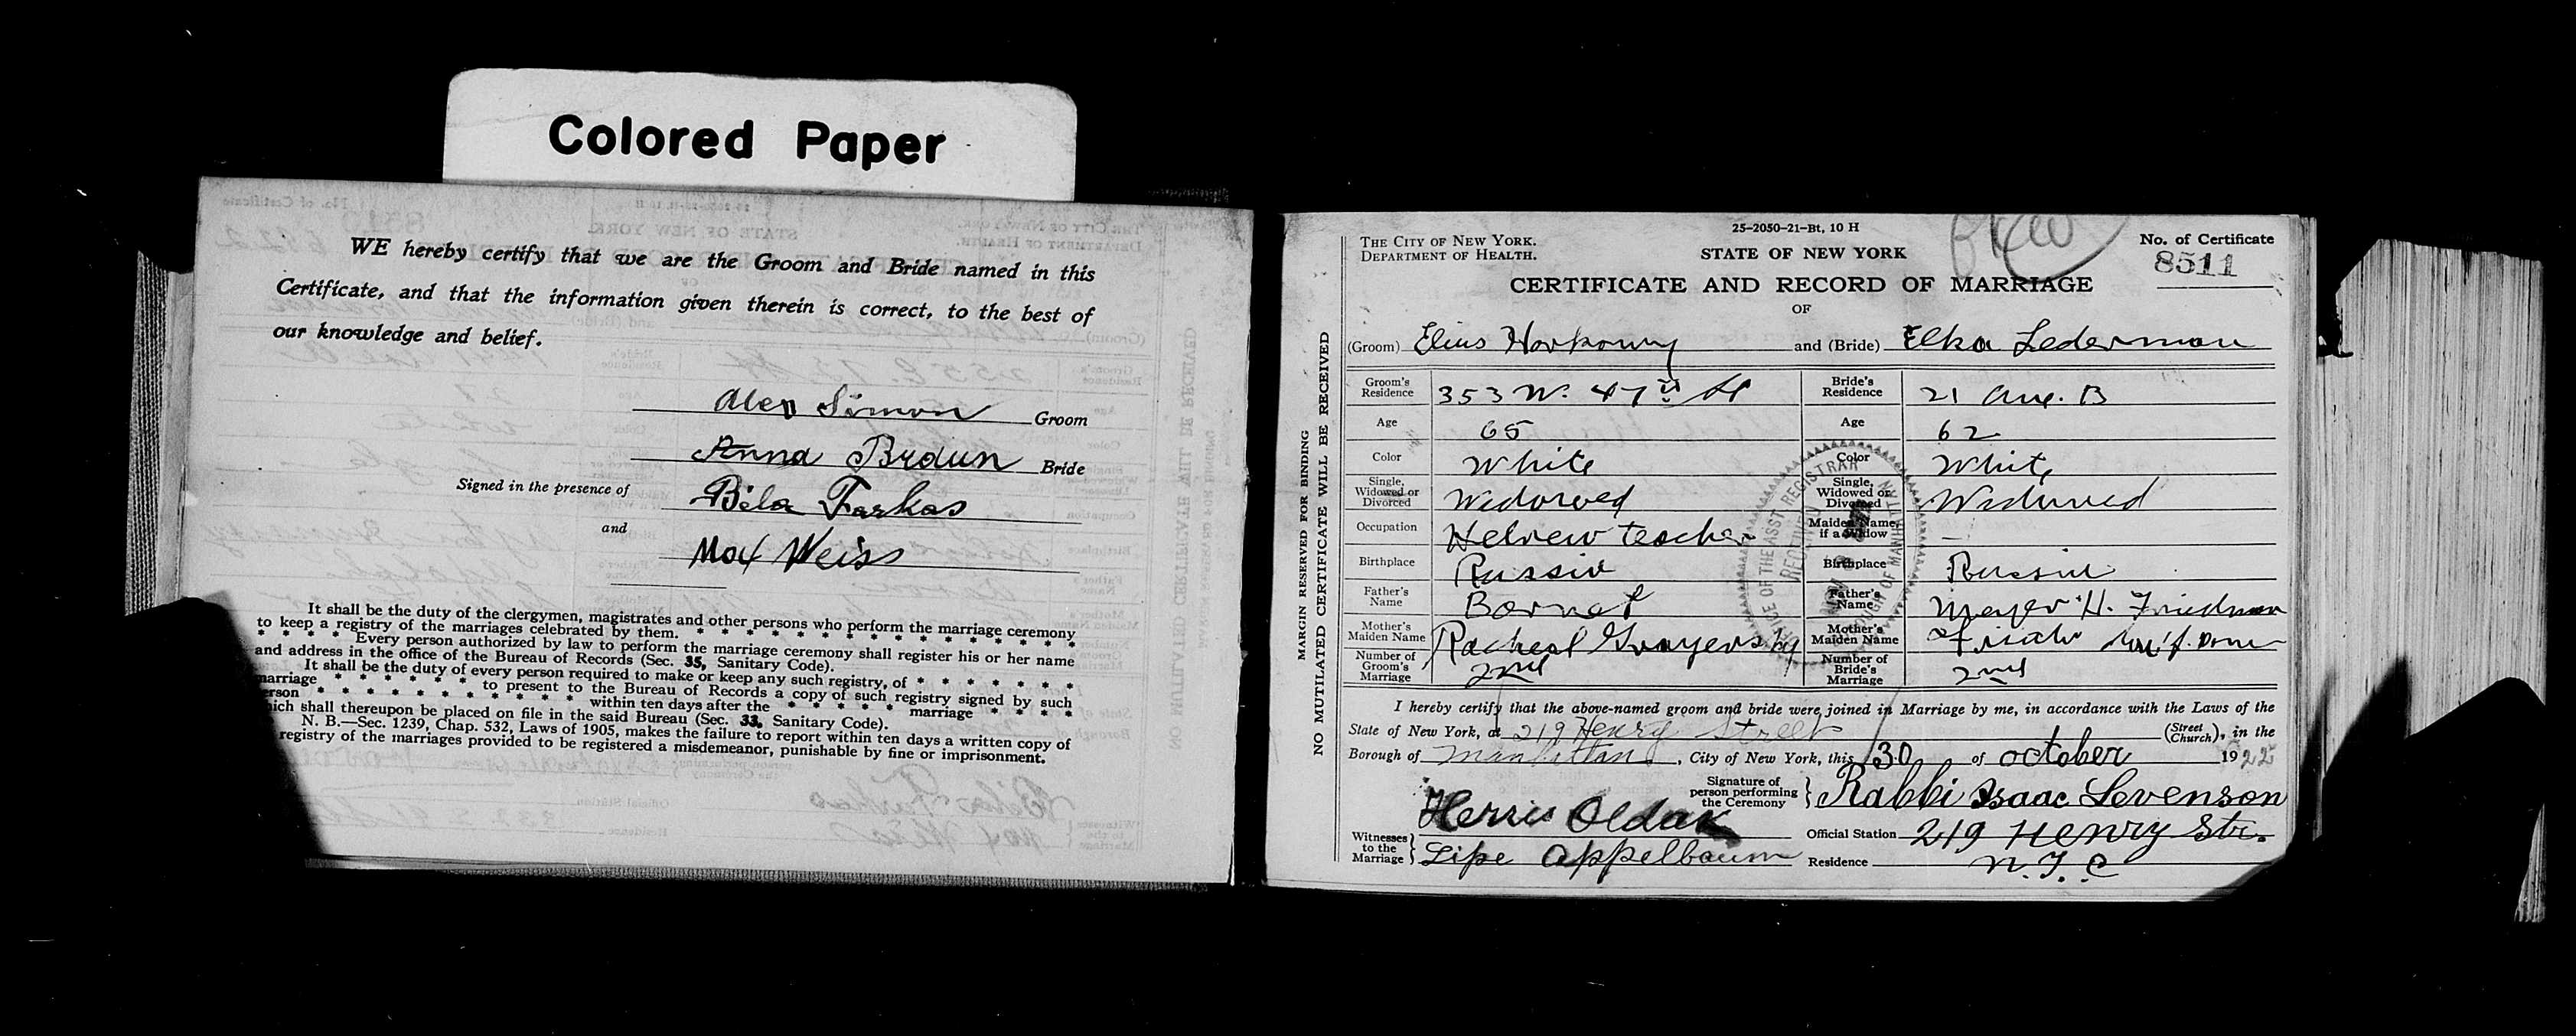 Colored Paper
WE hereby certify that we are the Groom and Bride named in this
Certificate, and that the information given therein is correct, to the best of
our knowledge and belief.
Alex Simon Groom
Anna Braun Bride
Signed in the presence of Béla Farkas
and
Max Weiss
It shall be the duty of the clergymen, magistrates and other persons who perform the marriage ceremony
to keep a registry of the marriages celebrated by them. * * * * * * * * * * * * *
* * * * Every person authorized by law to perform the marriage ceremony shall register his or her name
and address in the office of the Bureau of Records (Sec. 35, Sanitary Code).
It shall be the duty of every person required to make or keep any such registry, of * * * * * *
marriage * * * * * * to present to the Bureau of Records a copy of such registry signed by such
erson * * * * * * * * * * within ten days after the * * * * * marriage * * * *
hich shall thereupon be placed on file in the said Bureau (Sec. 33, Sanitary Code).
N. B.—Sec. 1239, Chap. 532, Laws of 1905, makes the failure to report within ten days a written copy of
registry of the marriages provided to be registered a misdemeanor, punishable by fine or imprisonment.
MARGIN RESERVED FOR BINDING
NO MUTILATED CERTIFICATE WILL BE RECEIVED
25-2050-21-Bt, 10 H
THE CITY OF NEW YORK.
DEPARTMENT OF HEALTH.
STATE OF NEW YORK
No. of Certificate
8511
CERTIFICATE AND RECORD OF MARRIAGE
OF
(Groom) Elius and (Bride) Elka Lederman
Groom's Residence 353 W. 47 St Bride's Residence 21 Ave. B
Age 65 Age 62
Color White Color White
Single, Widowed or Divorced Widowed Single, Widowed or Divorced Widowed
Occupation Hebrew teacher Maiden Name, if a Widow —
Birthplace Russia Birthplace Russia
Father's Name Bornat Father's Name Meyer H. Friedman
Mother's Maiden Name Racheal Mother's Maiden Name
Number of Groom's Marriage 2nd Number of Bride's Marriage 2nd
I hereby certify that the above-named groom and bride were joined in Marriage by me, in accordance with the Laws of the
State of New York, at 219 Henry Street (Street Church), in the
Borough of Manhattan, City of New York, this 30 of october 1922
Signature of person performing the Ceremony Rabbi Isaac Levenson
Witnesses to the Marriage Herris Oldak
Lipe Appelbaum
Official Station 219 Henry Str.
Residence N.Y.C